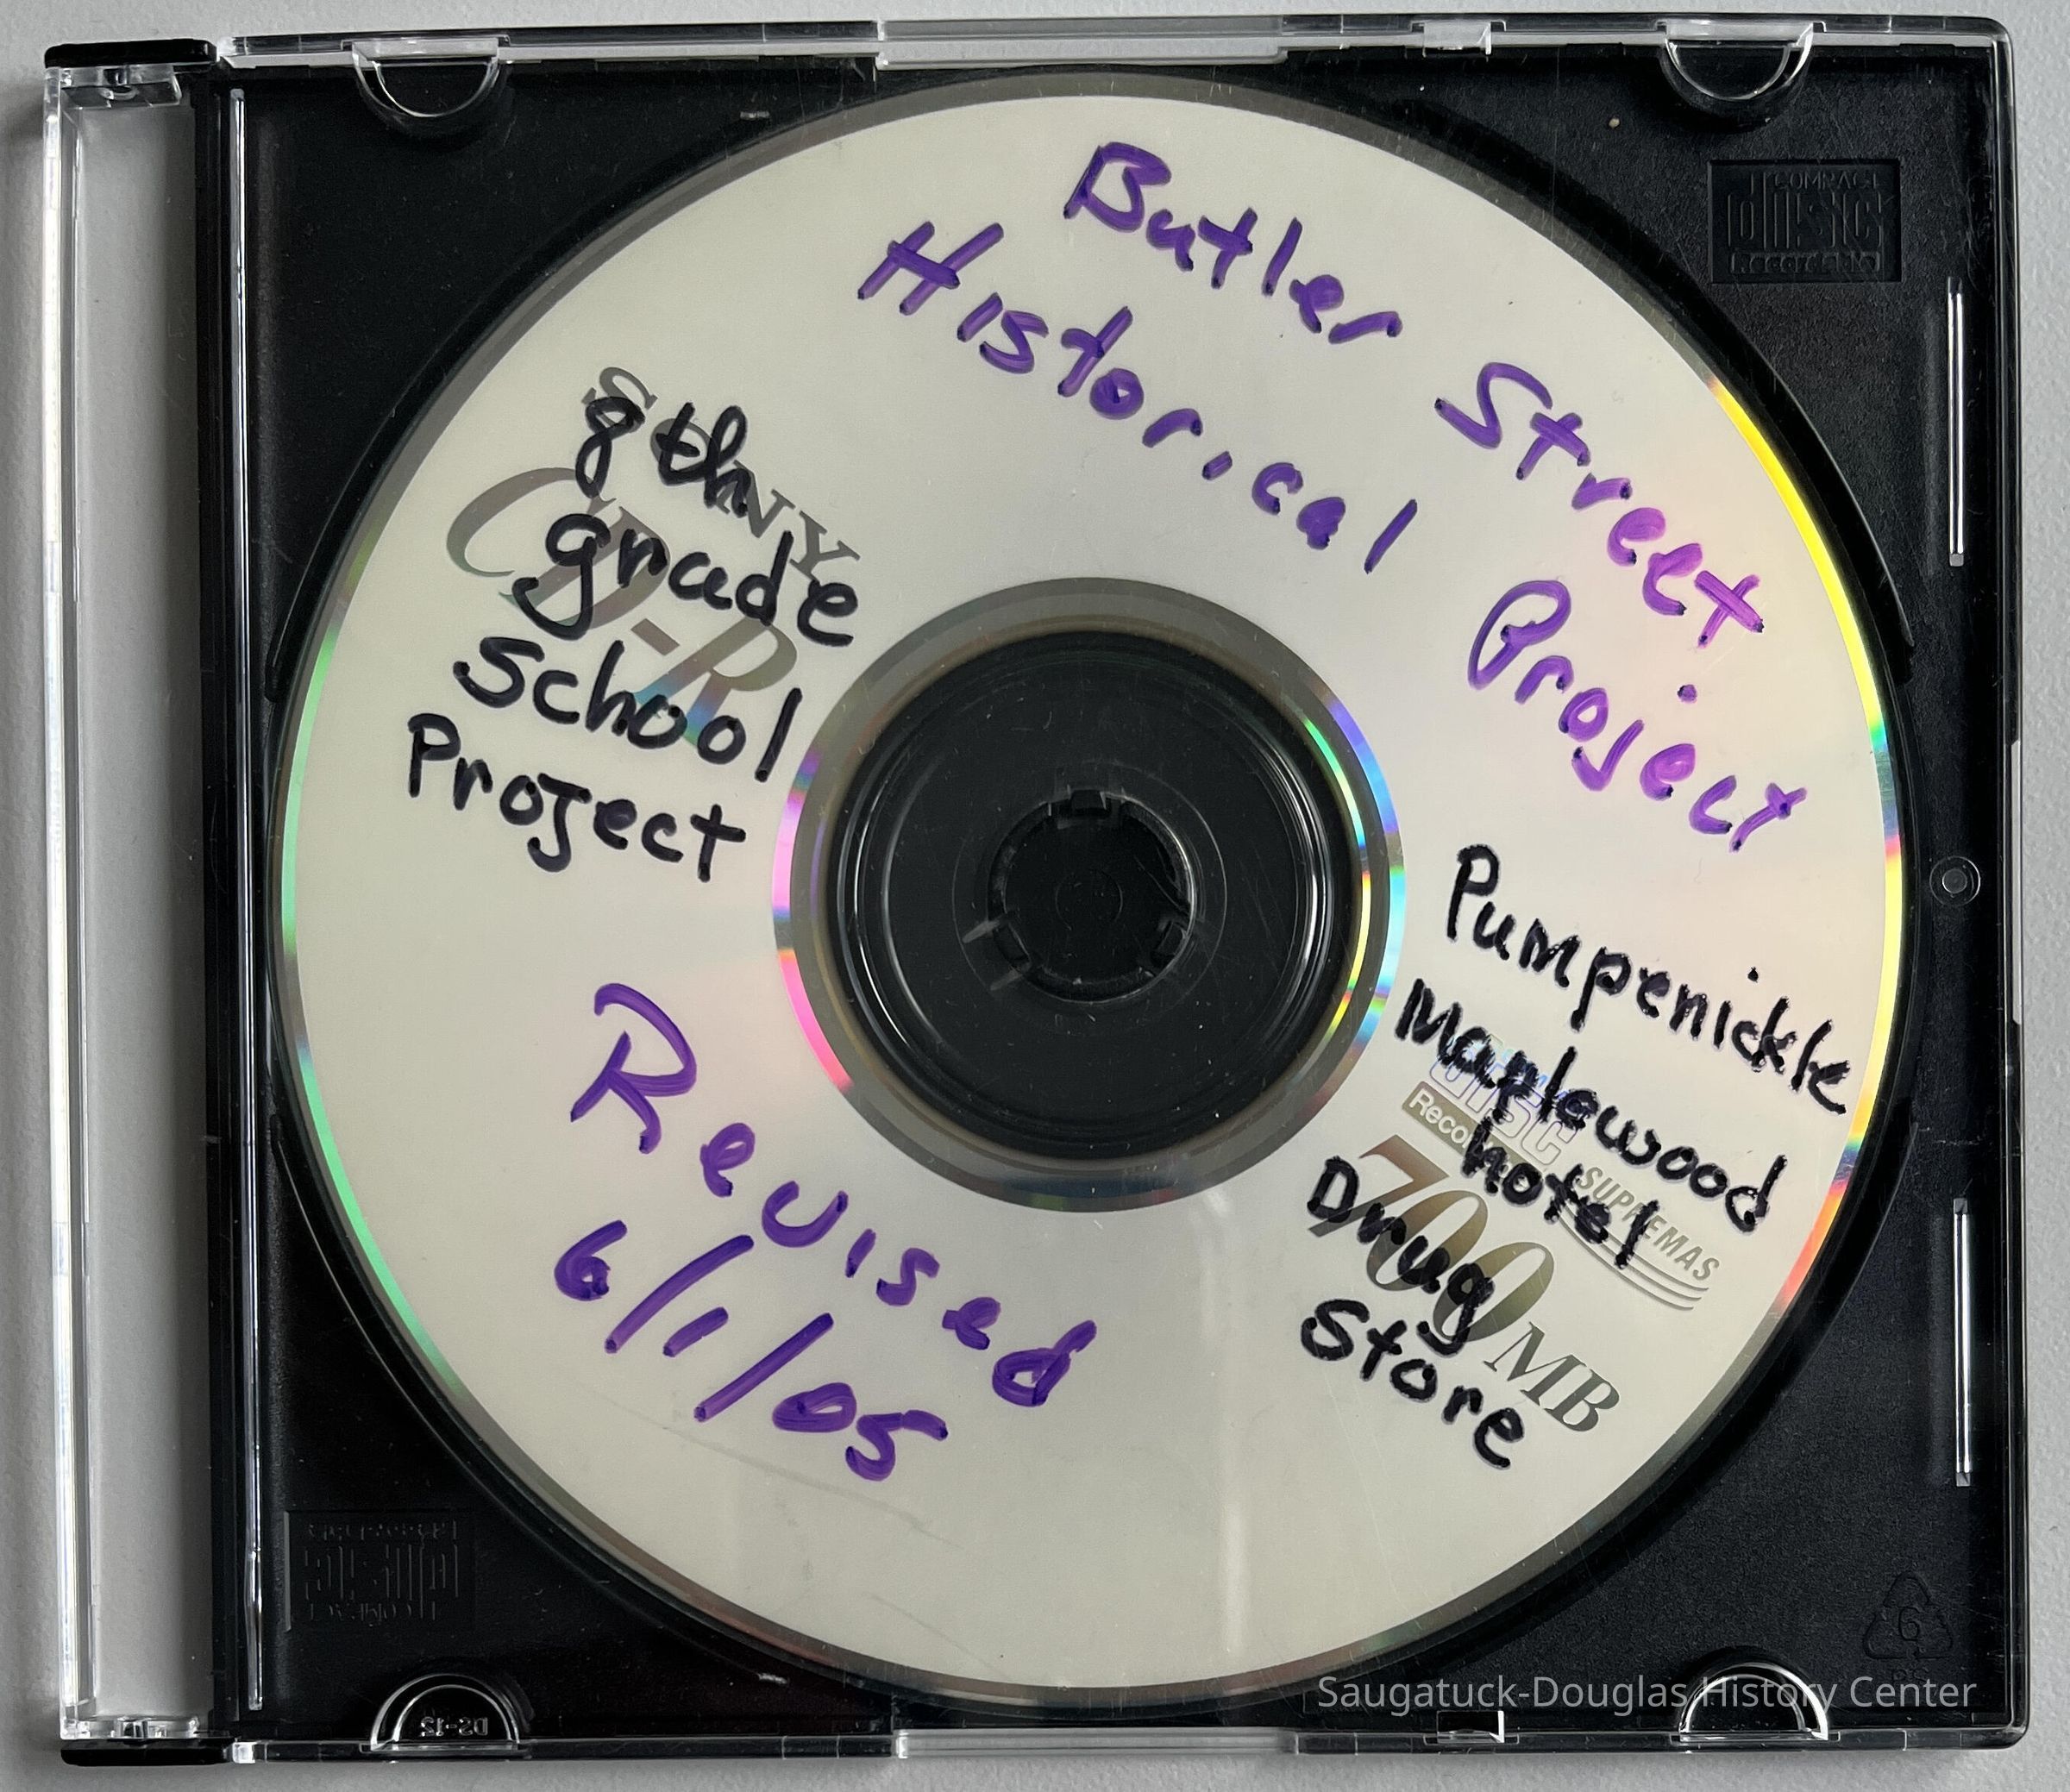 Butler Street
Historical Project
8th
grade
School
Project
SONY
CD-R
Pumpenickle
Maplewood
hotel
Drug
Store
disc
SUPREMAS
700 MB
Revised
6/1/05
COMPACT
disc
Recordable
6
DS-12
Saugatuck-Douglas History Center